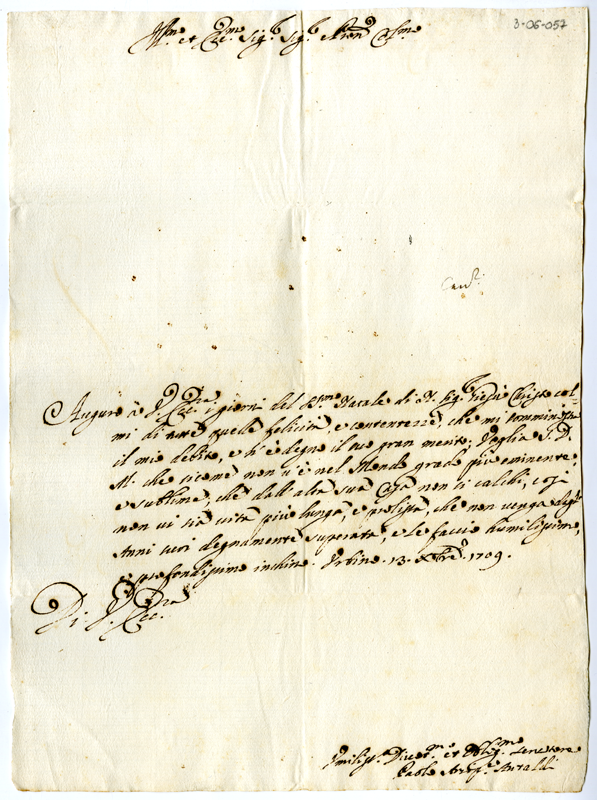 3-06-057
Ill.mo et Ecc.mo Sig.r Sig.r Pron Col.mo
Auguro à V. Ecc.za i giorni del SS.mo Natale di N. Sig.r Giesù Christo col-
mi di tutte quelle felicità, e contentezze, che mi somministra
il mio debito, e di è degno il suo gran merito; Voglia S. D.
M. che sicome non v'è nel Mondo grado più eminente,
e sublime, che dall'alta sua Casa non si calchi, così
non vi sia vita più lunga, e prolissa, che non venga dagl'
Anni suoi degnamente superata, e le faccio humilissimo,
e profondissimo inchino. Urbino 13 Xbre 1709.
Di V. Ecc.za
Umiliss.o Divot.mo et Obblig.mo Servitore
Paolo Antaldi